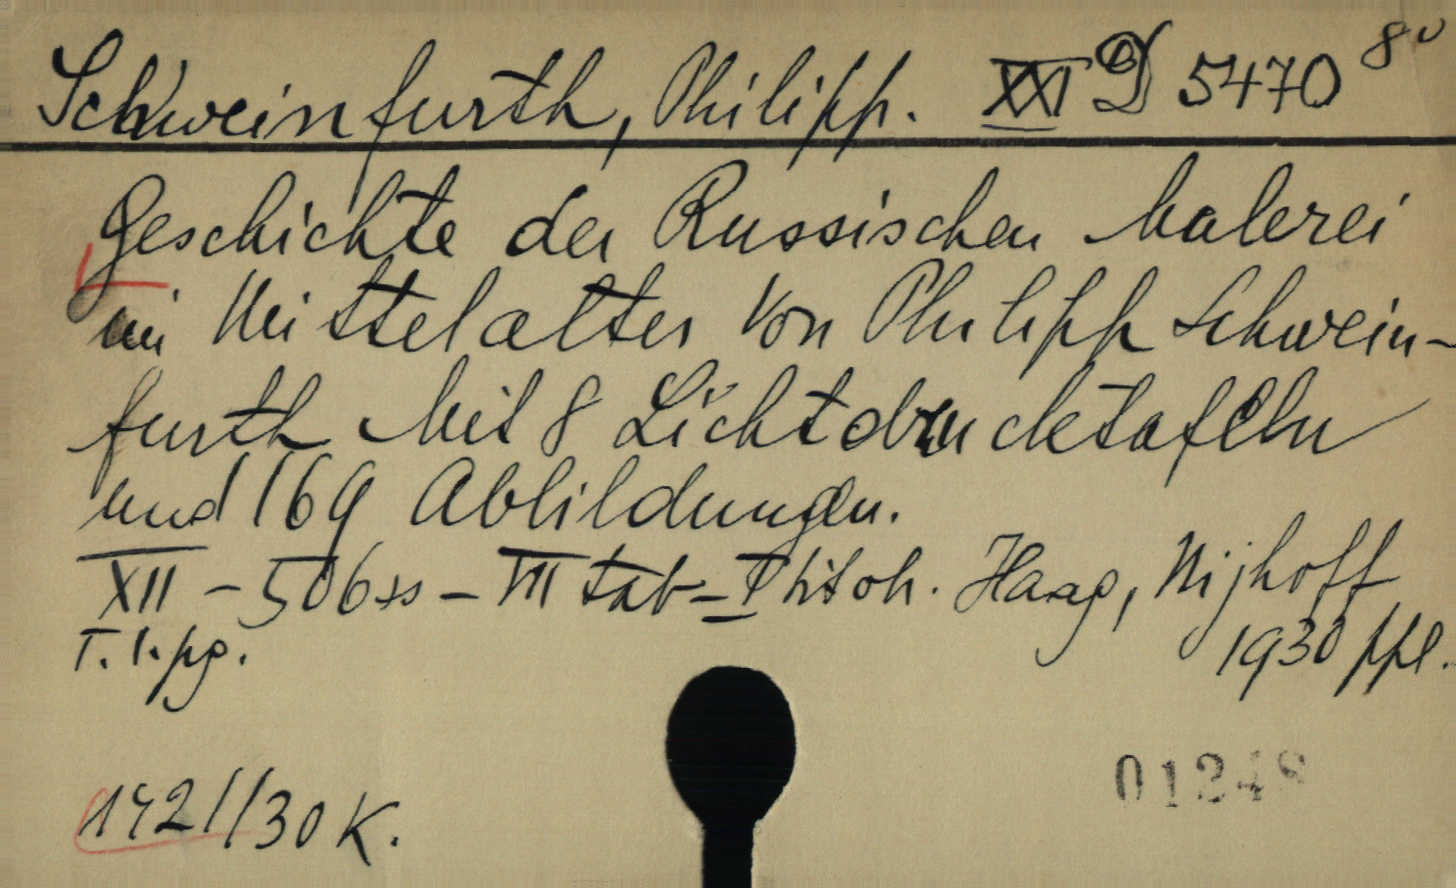 Schweinfurth, Philipp. XXI D 5470 8°
Geschichte der Russischen Malerei
im Mittelalter Von Philipp Schwein-
furth Mit 8 Lichtdrucktafeln
und 169 Abbildungen.
XII - 506 ss - VIII tab - Haag, Nijhoff
T. 1. pg. 1930 ppl.
1421/30 K.
01248